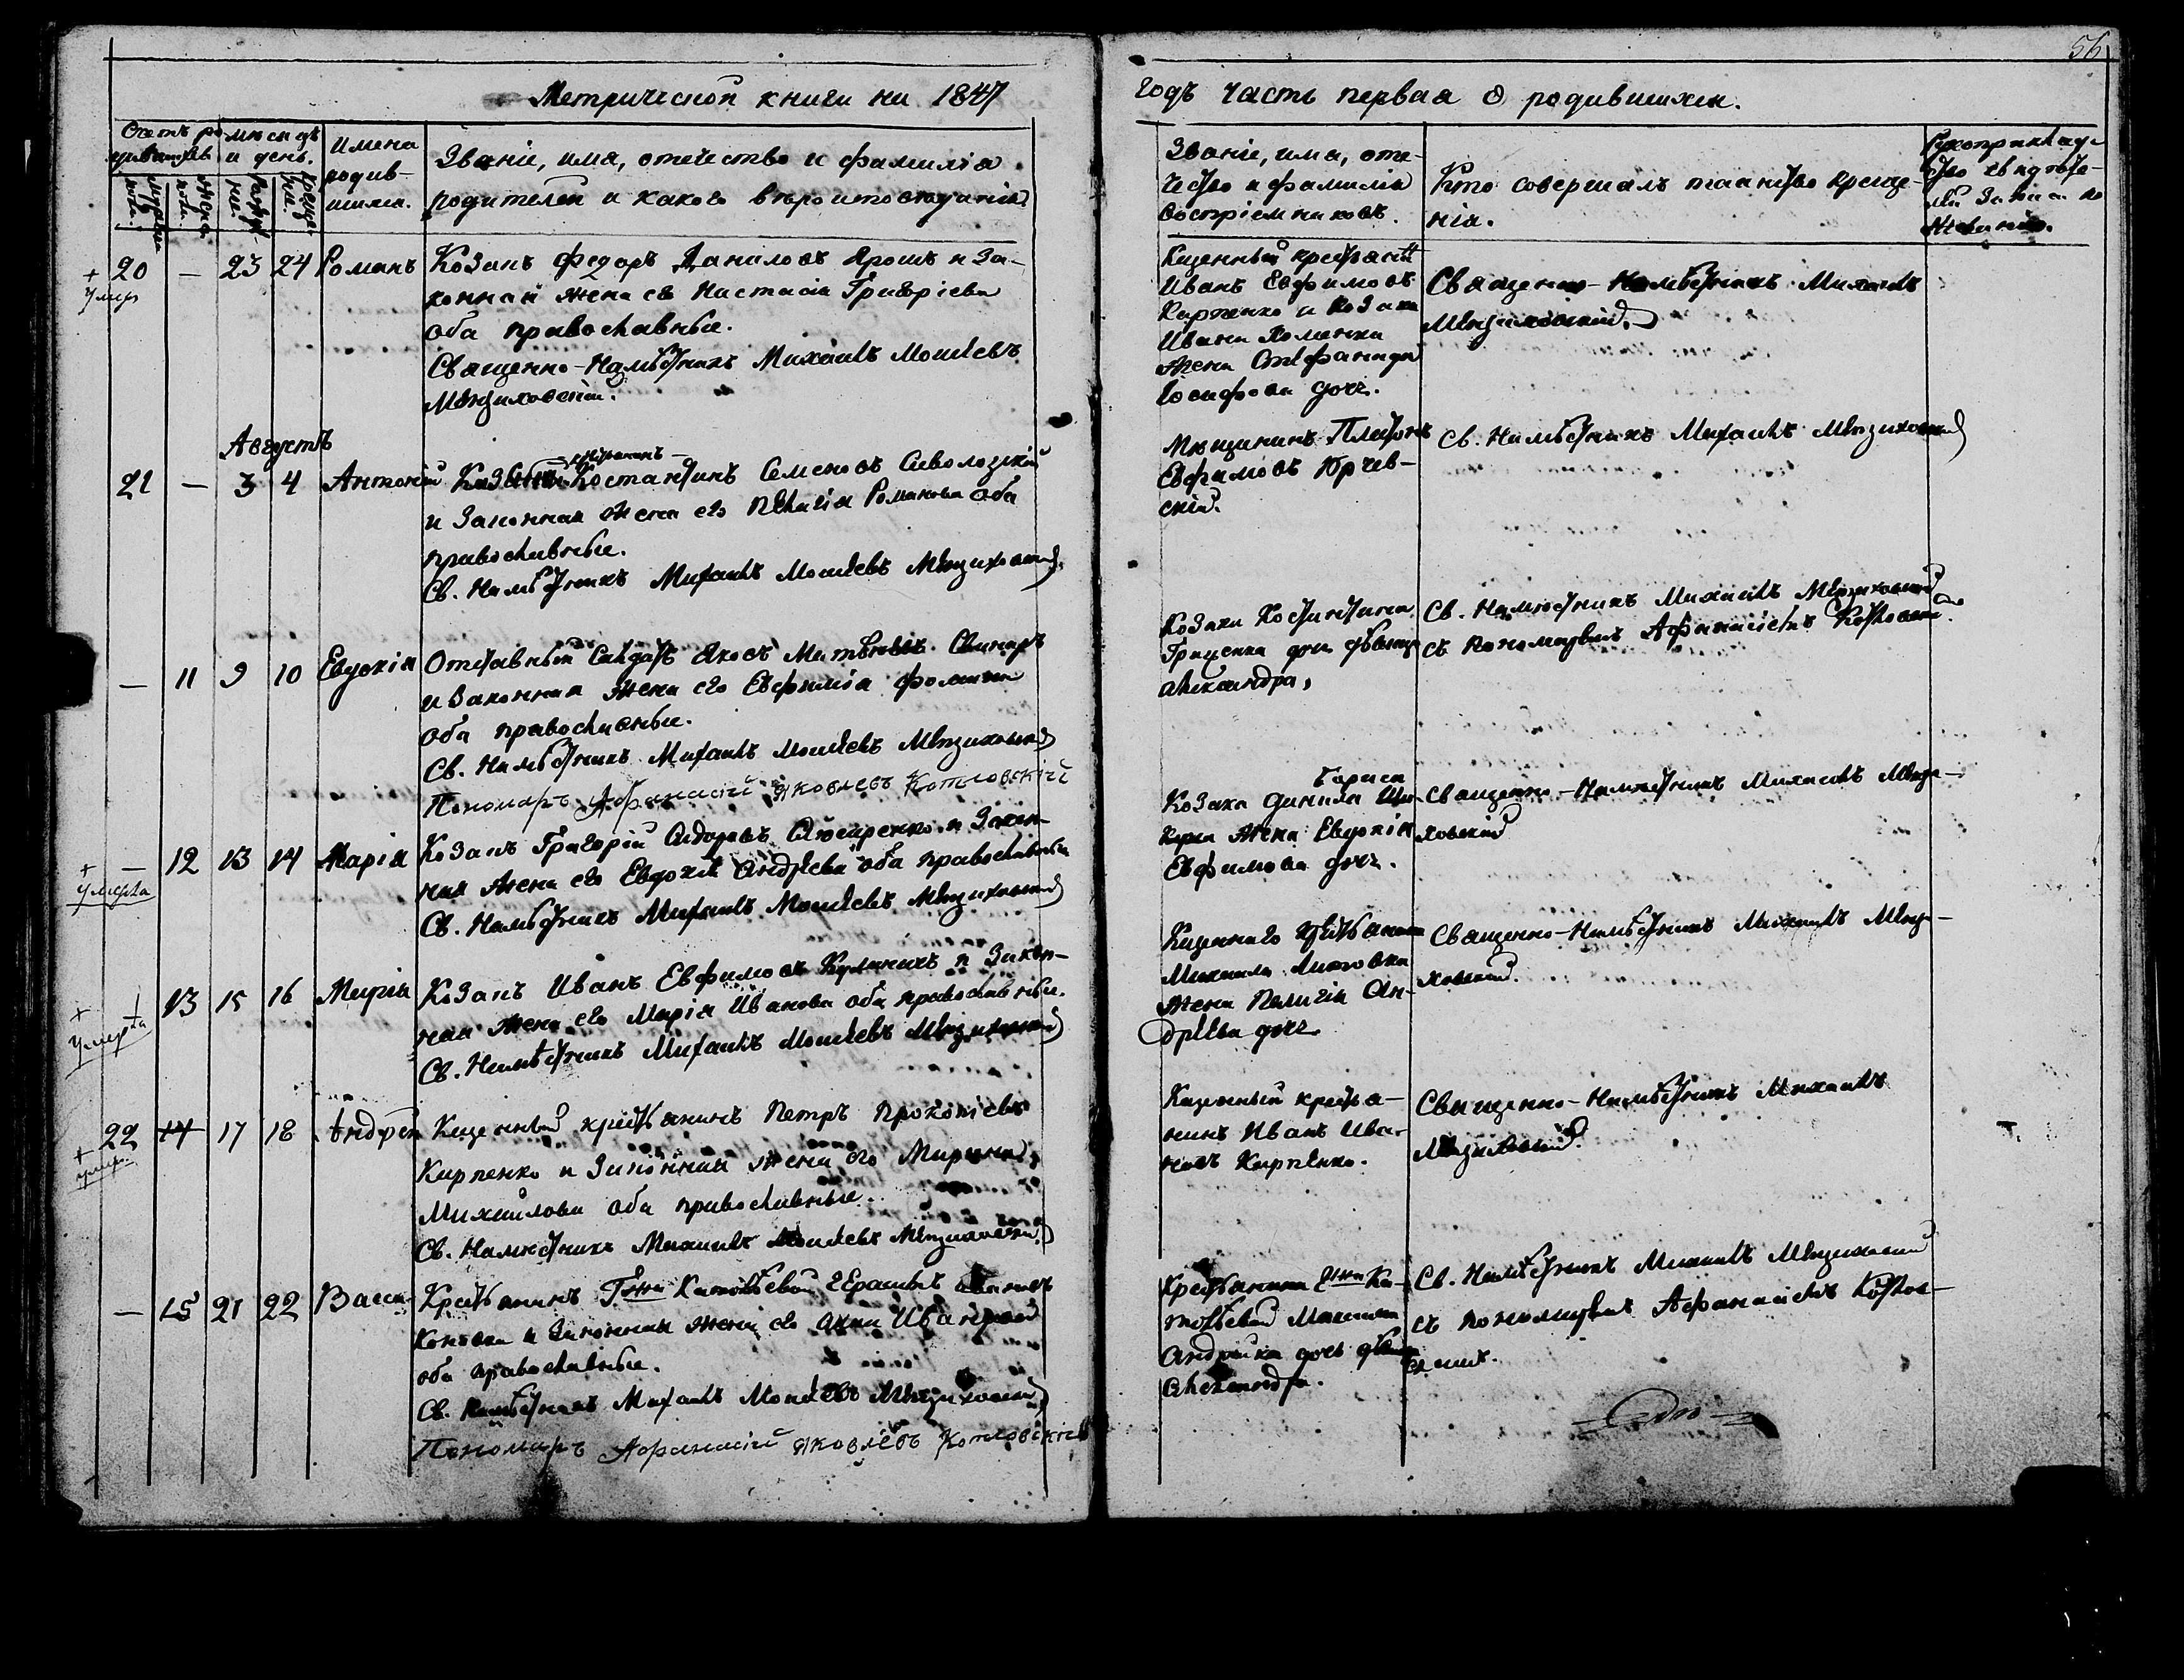 56
Метрической книги на 1847
годъ часть первая о родившихся.
Счетъ родившихся
мужеска пола.
женска пола.
месяцъ и день.
рожденія.
крещенія.
Имена родившихся.
Званіе, имя, отечество и фамилія
родителей и какого вероисповеданія.
Званіе, имя, оте-
чество и фамилія
воспріемниковъ.
Кто совершалъ таинство креще-
нія.
Рукоприкладс-
тво свидѣте-
лей записи по
желанію.
+ умер
20 — 23 24 Романъ
Козакъ Федоръ Даниловъ Ярошъ и За-
конная жена его Настасія Григоріева
оба православные.
Священно-Намѣстникъ Михаилъ Моисеевъ
Казенный крестьянинъ
Иванъ Евфимовъ
Карпенко и козака
Ивана Хоменка
жена Стефанида
Іосифова дочь.
Священно-Намѣстникъ Михаилъ
Августъ
21 — 3 4 Антоній
Костантинъ Семеновъ
и Законная жена его Пелагія Романова оба
православные.
Св. Намѣстникъ Михаилъ Моисеевъ
Мещанинъ Платонъ
Евфимовъ Юрчев-
скій.
Св. Намѣстникъ Михаилъ
— 11 9 10 Евдокія
Отставный Солдатъ Яковъ Матвѣевъ Свинаръ
и Законная жена его Евфимія Фомина
оба православные.
Св. Намѣстникъ Михаилъ Моисеевъ
Пономаръ Афанасій Яковлевъ Котловскій
Козака Костантина
Гриценка дочь дѣвица
Александра,
Св. Намѣстникъ Михаилъ
съ пономаремъ Афанасіемъ Котловскимъ.
+ умерла
— 12 13 14 Марія
Козакъ Григорій Сидоровъ и Закон-
ная жена его Евдокія Андреева оба православные
Св. Намѣстникъ Михаилъ Моисеевъ
Бориса
Козака Данила
жена Евдокія
Евфимова дочь.
Священно-Намѣстникъ Михаилъ
ховскій
+ умерла
— 13 15 16 Марія
Козакъ Иванъ Евфимовъ Куминахъ и Закон-
ная жена его Марія Иванова оба православные.
Св. Намѣстникъ Михаилъ Моисеевъ
Казеннаго крестьянина
Михаила Литовка
жена Палагія Ан-
дреева дочь
Священно-Намѣстникъ Михаилъ
ховскій.
+ умеръ
22 14 17 18 Андрей
Казенный крестьянинъ Петръ Прокопіевъ
Карпенко и Законная жена его Марина
Михайлова оба православные.
Св. Намѣстникъ Михаилъ Моисеевъ
Казенный крестья-
нинъ Иванъ Ива-
новъ Карпенко.
Священно-Намѣстникъ Михаилъ
— 15 21 22 Васса
Крестьянинъ Г-жи
и Законная жена его Анна Иванова
оба православные.
Св. Намѣстникъ Михаилъ Моисеевъ
Пономаръ Афанасій Яковлевъ Котловскій
Крестьянина Г-жи
Андрейка дочь дѣвица
Александра.
Св. Намѣстникъ Михаилъ
съ пономаремъ Афанасіемъ Котлов-
скимъ.